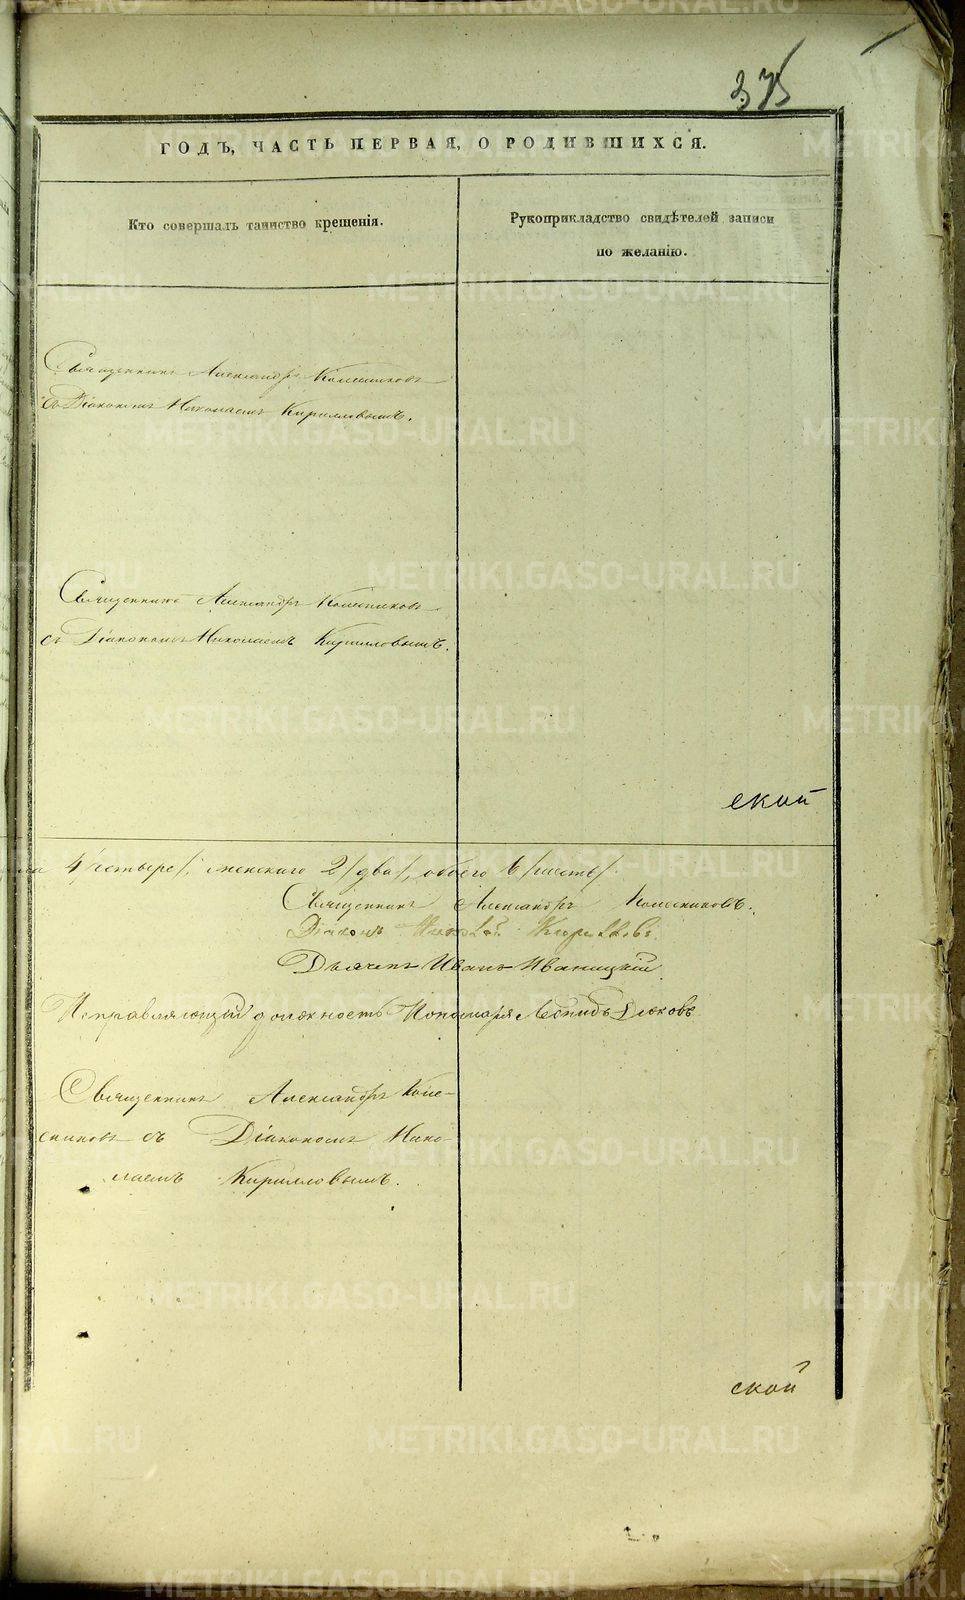 375
ГОДЪ, ЧАСТЬ ПЕРВАЯ, О РОДИВШИХСЯ.
Кто совершалъ таинство крещенія.
Рукоприкладство свидѣтелей записи
по желанію.
Священникъ Александръ Колесниковъ
съ Діакономъ Николаемъ Кирилловымъ.
Священникъ Александръ Колесниковъ
съ Діакономъ Николаемъ Кирилловымъ.
ской
4/четыре/, женскаго 2/два/, обоего 6/шесть/.
Священникъ Александръ Колесниковъ.
Діаконъ Николай Кирилловъ
Дьячекъ Иванъ Иваницкій
Исправляющій должность Пономаря Леонидъ
Священникъ Александръ Коле-
сниковъ съ Діакономъ Нико-
лаемъ Кирилловымъ.
ской
METRIKI.GASO-URAL.RU